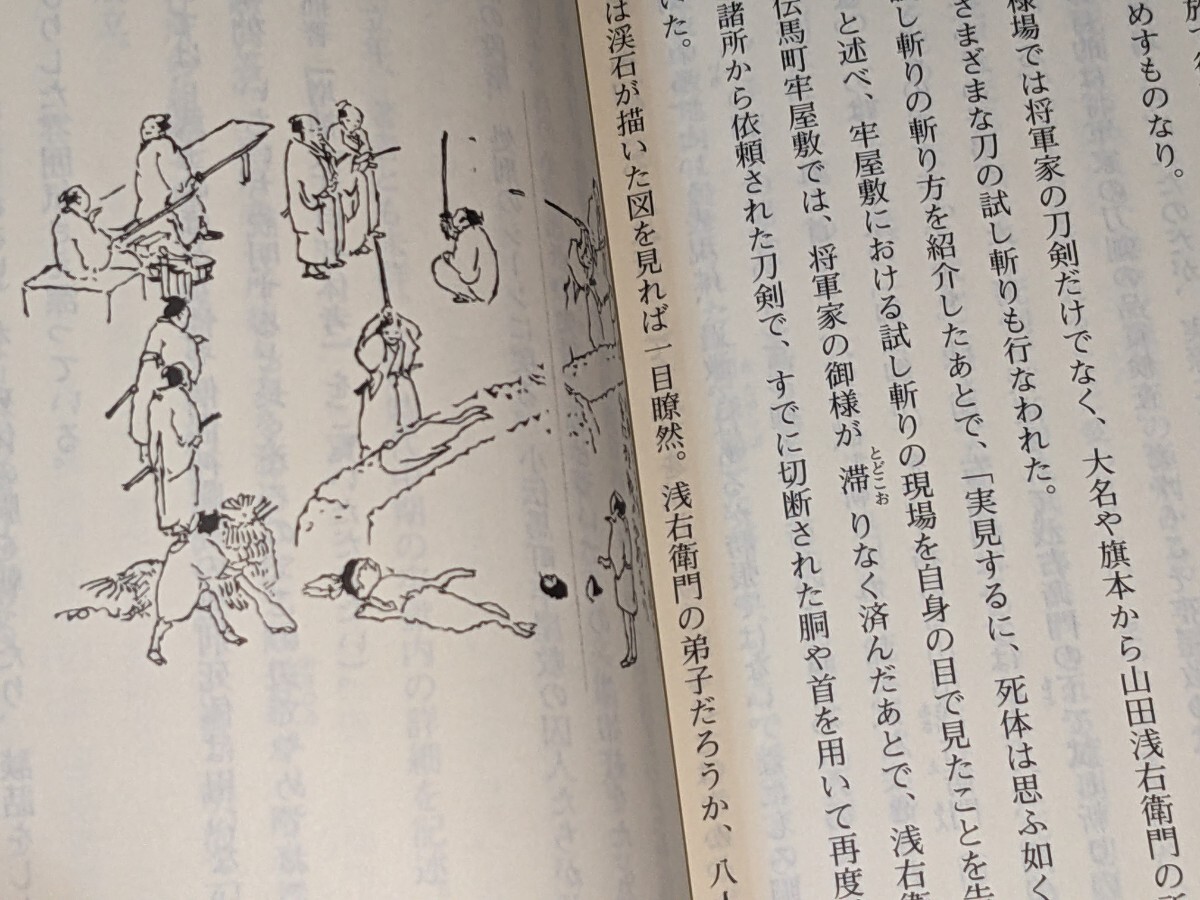 めすものなり。
様場では将軍家の刀剣だけでなく、大名や旗本から山田浅右衛門の
さまざまな刀の試し斬りも行なわれた。
試し斬りの斬り方を紹介したあとで、「実見するに、死体は思ふ如く
と述べ、牢屋敷における試し斬りの現場を自身の目で見たことを告
伝馬町牢屋敷では、将軍家の御様が滞りなく済んだあとで、浅右衛
とどこお
諸所から依頼された刀剣で、すでに切断された胴や首を用いて再度
いた。
は渓石が描いた図を見れば一目瞭然。浅右衛門の弟子だろうか、八十